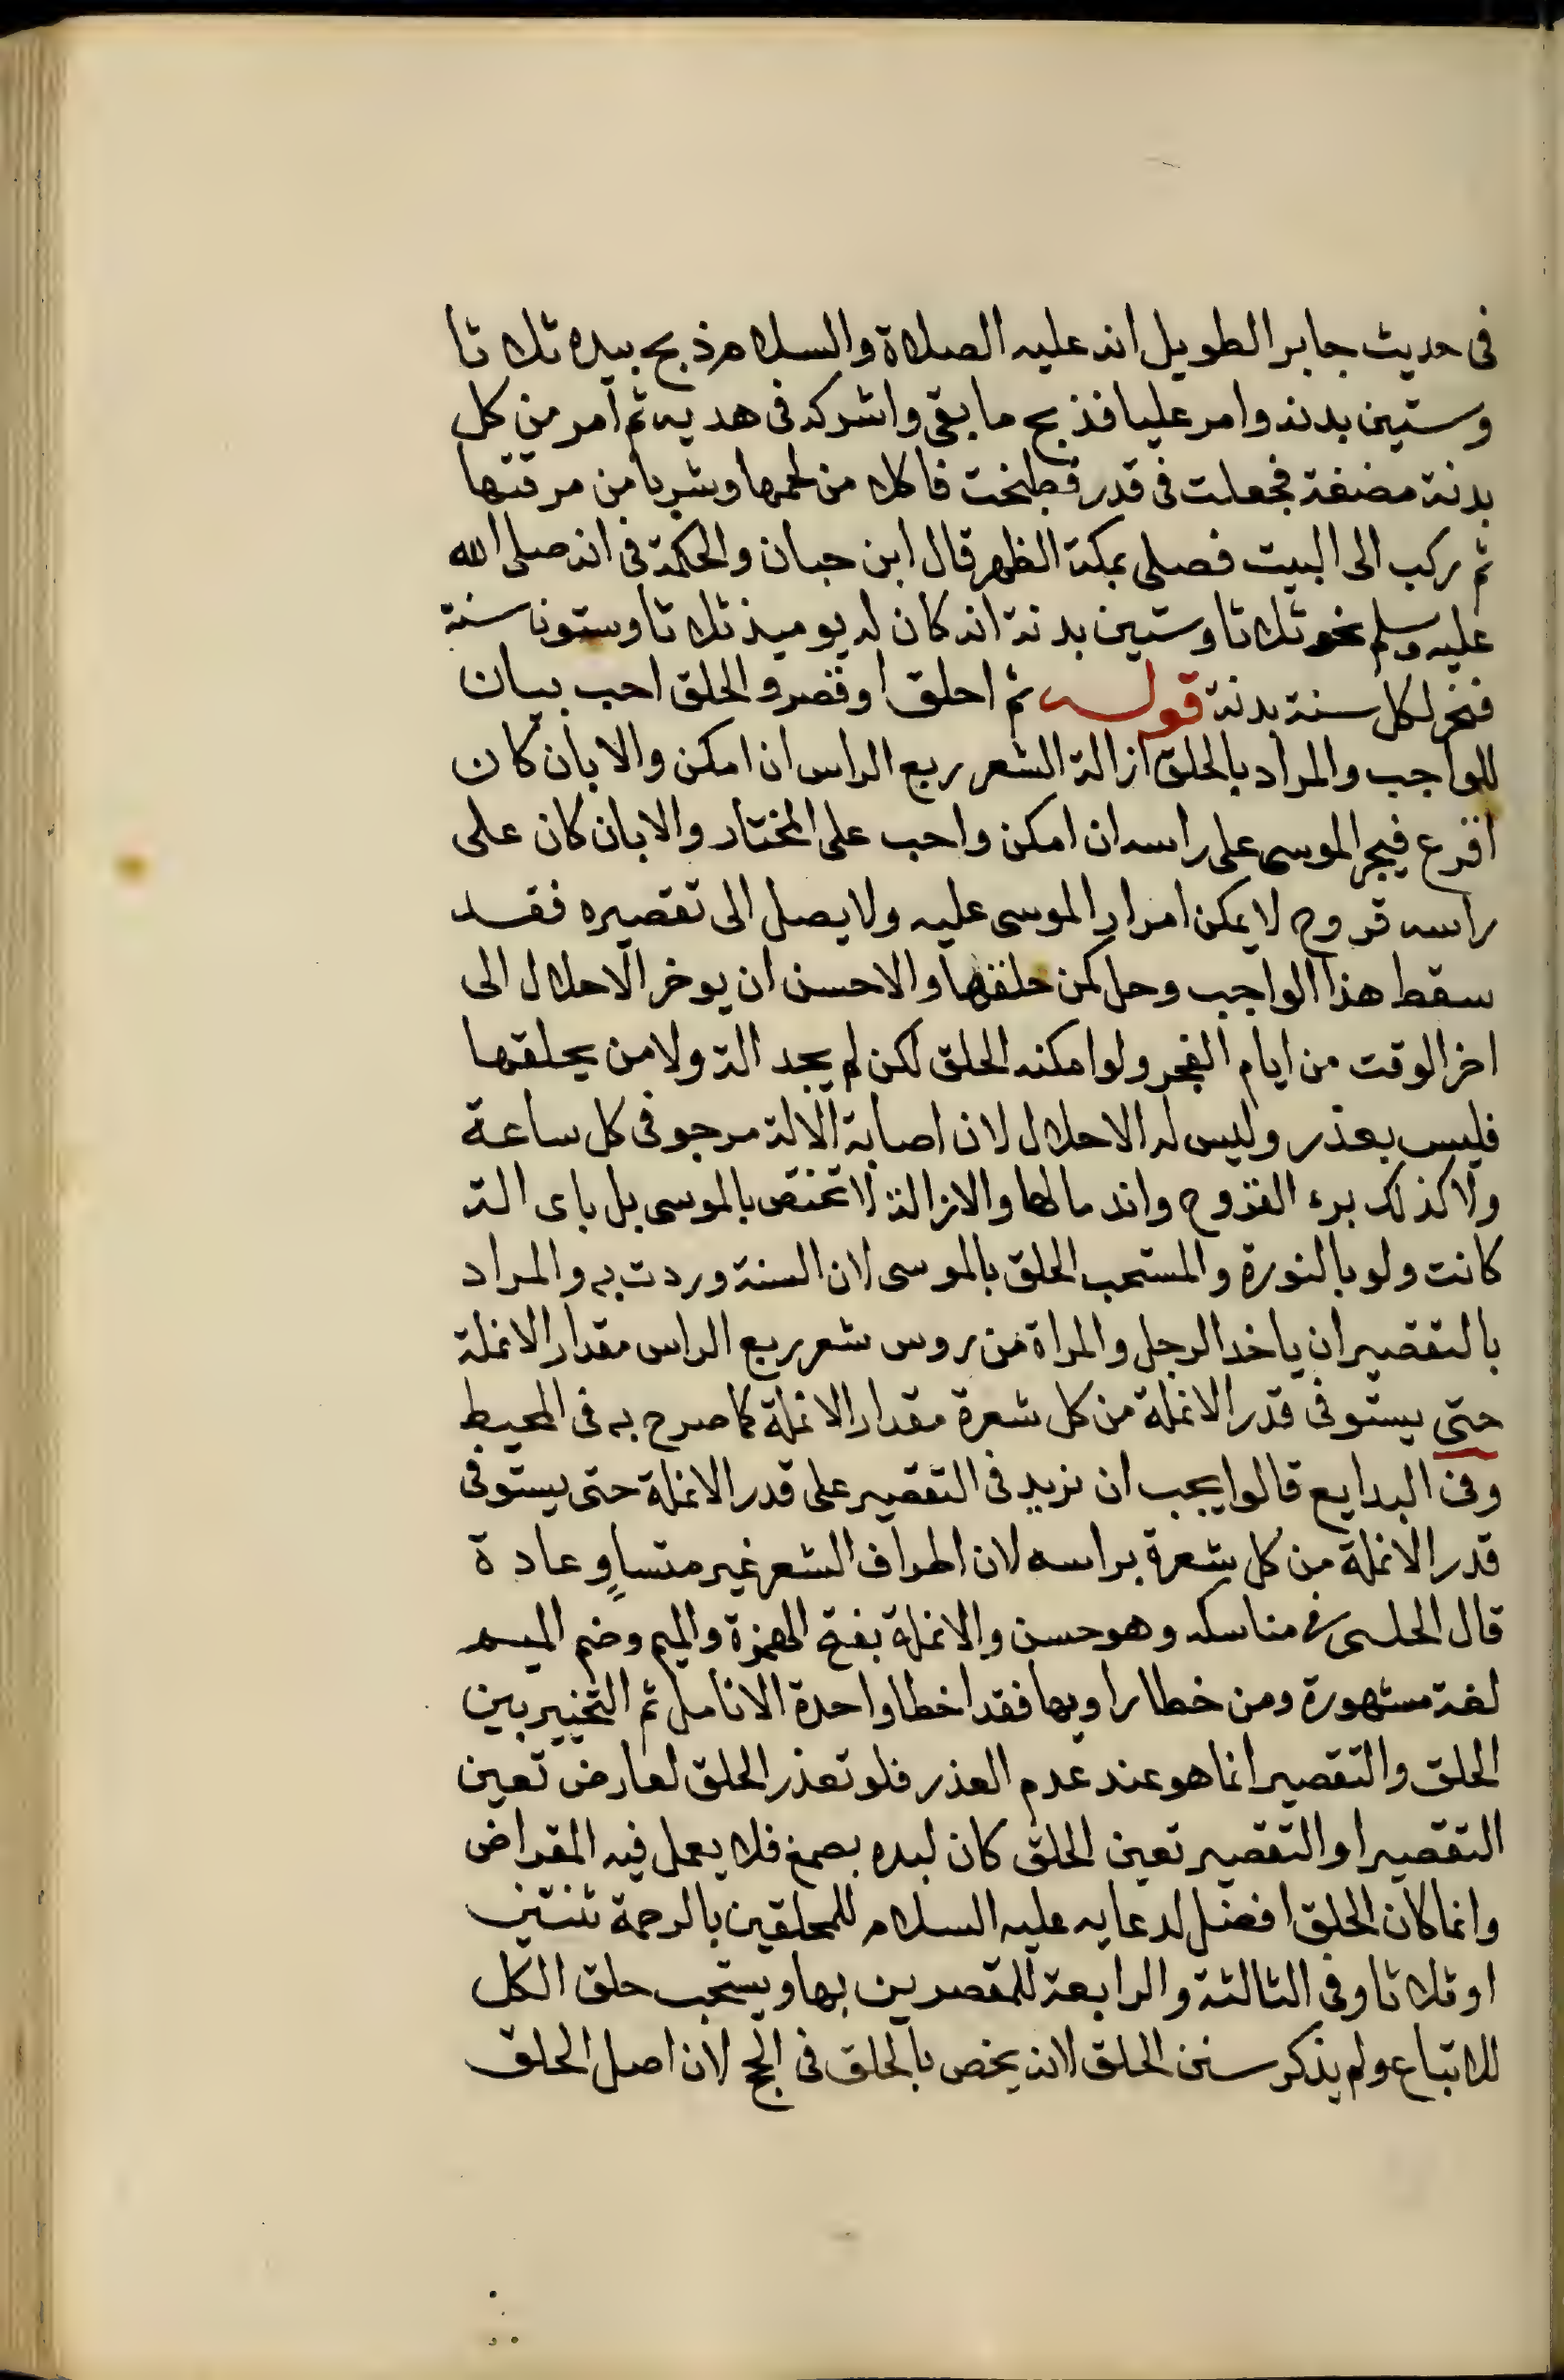 فى حديث جابر الطويل انه عليه الصلاة والسلام ذبح بيده ثلاثا
وستين بدنه وامر عليا فذبح ما بقى واشركه فى هديه ثم امر من كل
بدنة مضغة فجعلت فى قدر فطبخت فاكلا من لحمها وشربا من مرقتها
ثم ركب الى البيت فصلى بمكة الظهر قال ابن حبان والحكمة فى انه صلى الله
عليه وسلم نحر ثلاثا وستين بدنة انه كان له يوميذ ثلاثا وستون سنة
فنحر لكل سنة بدنة قوله ثم احلق او قصر والحلق احب بيان
للواجب والمراد بالحلق ازالة الشعر ربع الراس ان امكن والا بان كان
اقرع فيجر الموسى على راسه ان امكن واحب على المختار والا بان كان على
راسه قروح لا يمكن امرار الموسى عليه ولا يصل الى تقصيره فقد
سقط هذا الواجب وحل كمن حلقها والاحسن ان يوخر الاحلال الى
اخر الوقت من ايام الفجر ولو امكنه الحلق لكن لم يجد الة ولا من يحلقها
فليس بعذر وليس له الاحلال لان اصابة الالة مرجو فى كل ساعة
ولا كذلك برء القروح واندمالها والازالة لا تختص بالموسى بل باى الة
كانت ولو بالنورة والمستحب الحلق بالموسى لان السنة وردت به والمراد
بالتقصير ان ياخد الرجل والمراة من روس شعر ربع الراس مقدار الانملة
حتى يستوفى قدر الانملة من كل شعرة مقدار الانملة كما صرح به فى المحيط
وفى البدايع قالوا يجب ان نزيد فى التقصير على قدر الانملة حتى يستوفى
قدر الانملة من كل شعرة براسه لان اطراف الشعر غير متساوٍ عادة
قال الحلبى فى مناسكه وهو حسن والانملة بفتح الهمزة والميم وضم الميم
لغة مشهورة ومن خطا راويها فقد اخطا واحدة الانامل ثم التخيير بين
الحلق والتقصير انما هو عند عدم العذر فلو تعذر الحلق لعارض تعين
التقصير او التقصير تعين الحلق كان لبده بصمغ فلا يعمل فيه المقراض
وانما كان الحلق افضل لدعايه عليه السلام للمحلقين بالرحمة ثنتين
او ثلاثا وفى الثالثة والرابعة للمقصرين بها ويستحب حلق الكل
للاتباع ولم يذكر سنن الحلق لانه يخص بالحلق فى الحج لان اصل الحلق